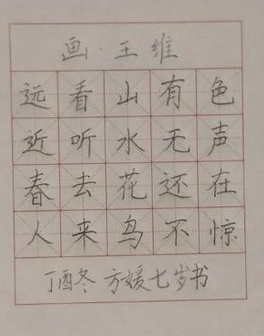 画·王维
远看山有色
近听水无声
春去花还在
人来鸟不惊
丁酉冬 方媛七岁书